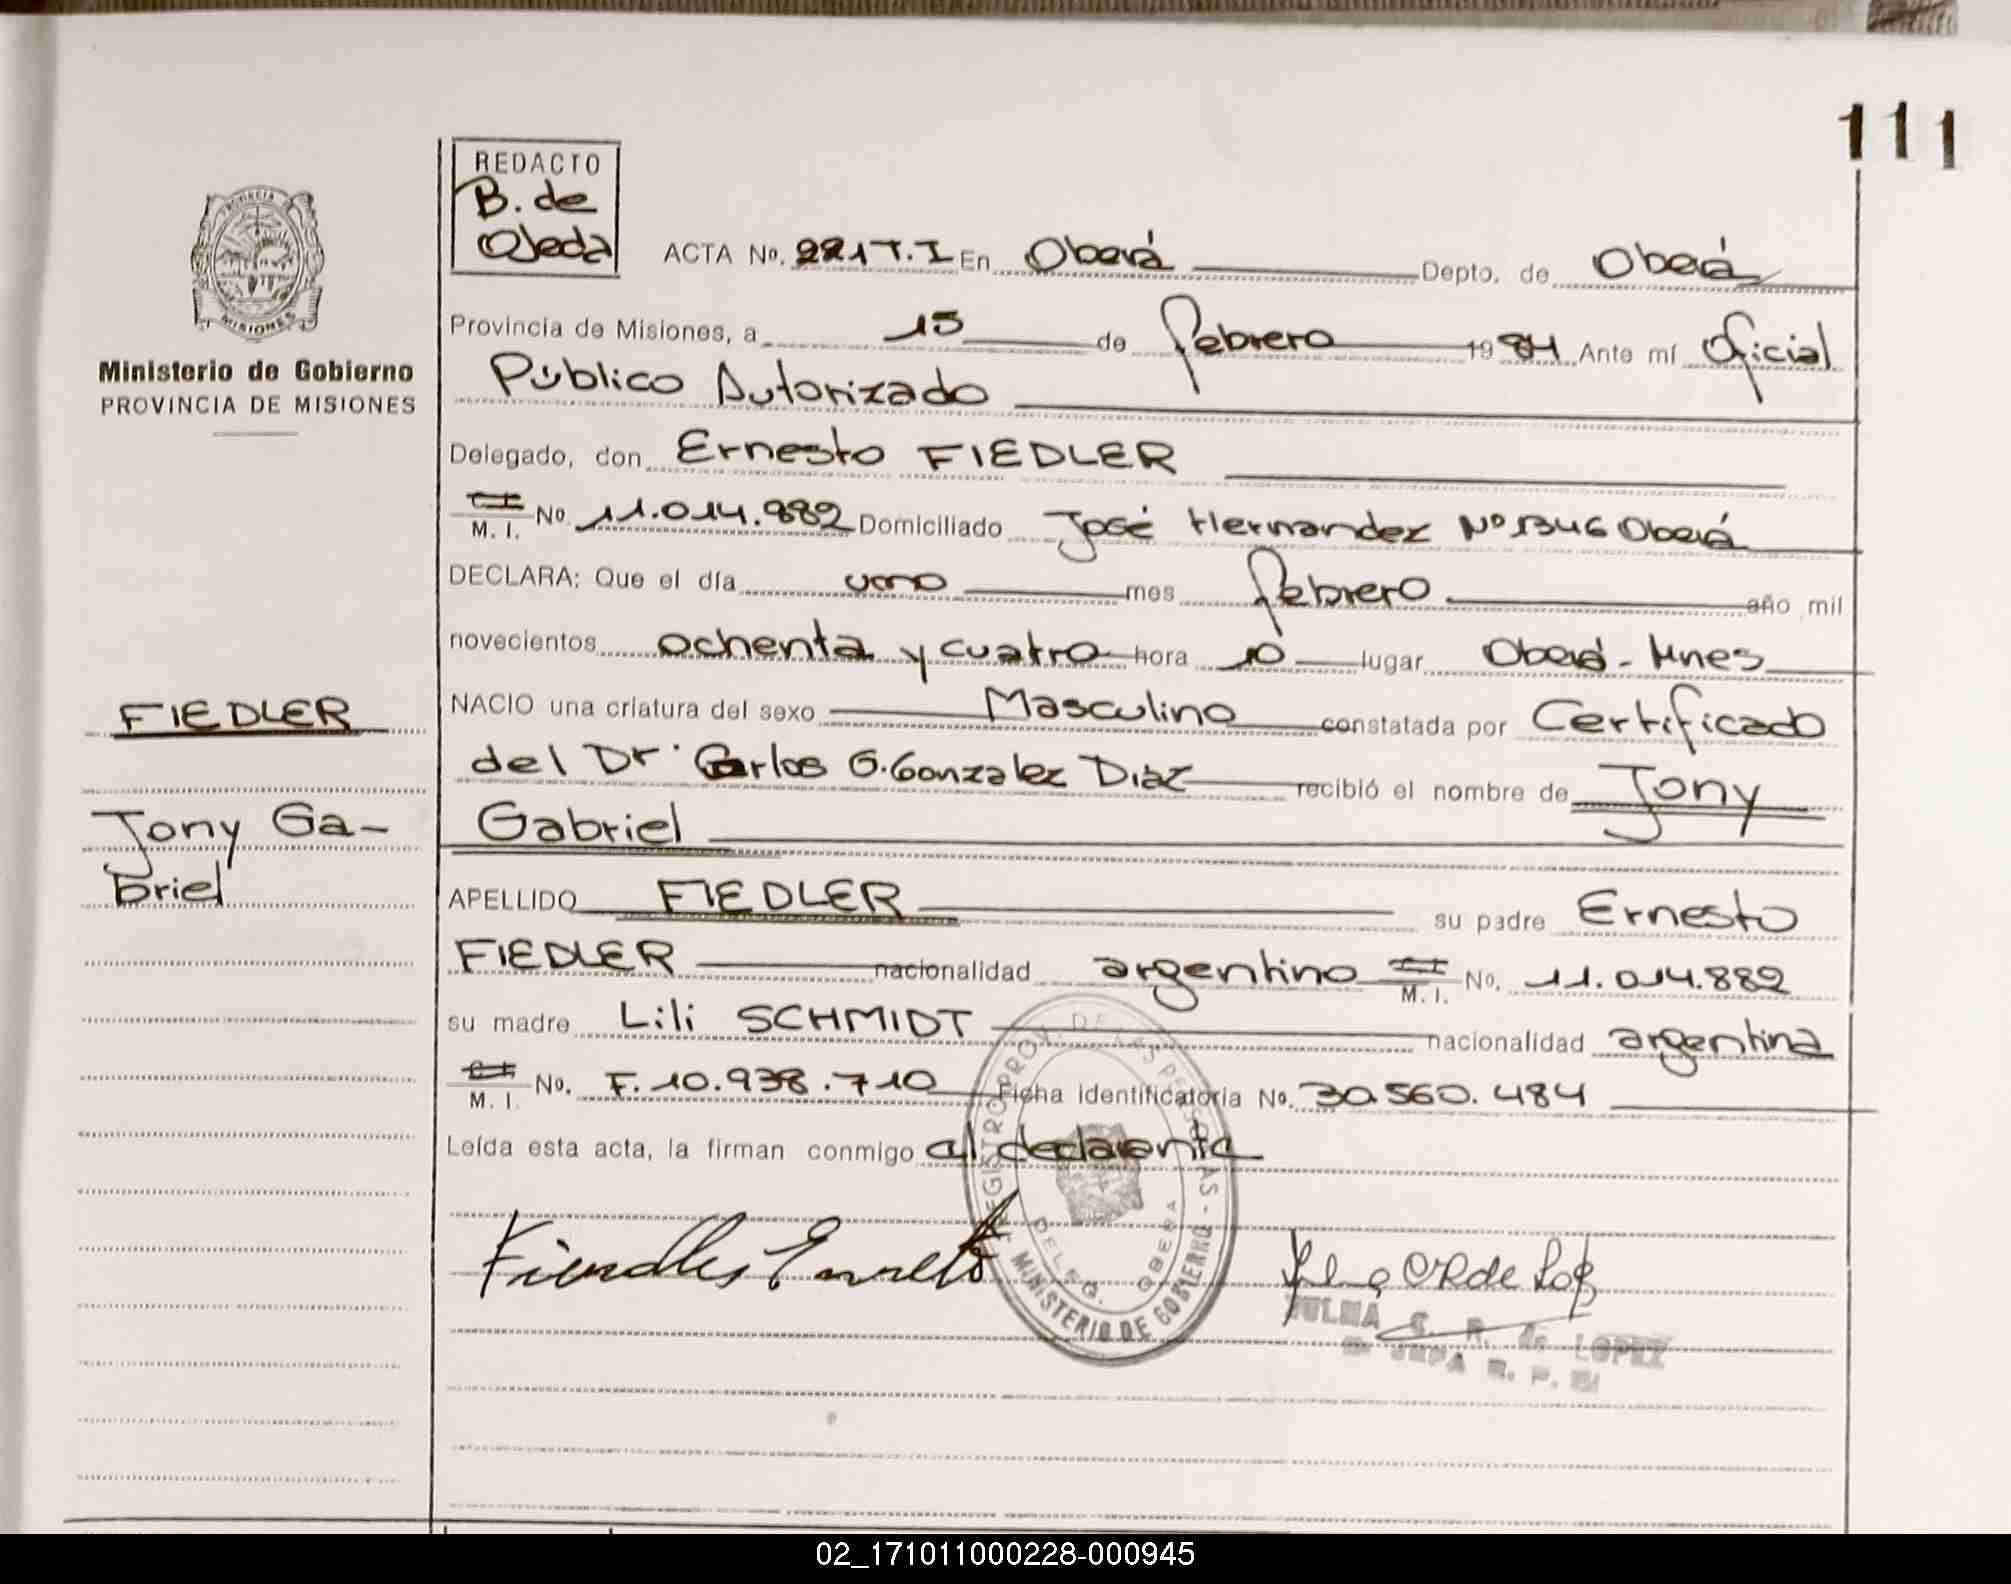 111
REDACTO
B. de
Ojeda
PROVINCIA
MISIONES
Ministerio de Gobierno
PROVINCIA DE MISIONES
ACTA No. 221 T.I En Oberá Depto. de Oberá
Provincia de Misiones, a 15 de febrero 1984 Ante mí Oficial
Público Autorizado
Delegado, don Ernesto FIEDLER
M. I. No. 11.014.882 Domiciliado José Hernandez Nº 1346 Oberá
DECLARA: Que el día uno mes febrero año mil
novecientos ochenta y cuatro hora 10 lugar Oberá - Mnes
NACIO una criatura del sexo Masculino constatada por Certificado
del Dr. Carlos G. Gonzalez Diaz recibió el nombre de Jony
Gabriel
FIEDLER
Jony Ga-
briel
APELLIDO FIEDLER su padre Ernesto
FIEDLER nacionalidad argentino M. I. No. 11.014.882
su madre Lili SCHMIDT nacionalidad argentina
M. I. No. F. 10.938.710 Ficha identificatoria No. 30.560.484
Leída esta acta, la firman conmigo el declarante
REGISTRO PROV. DE LAS PERSONAS - MINISTERIO DE GOBIERNO
DELEG. OBERA
ZULMA C. R. de LOPEZ
JEFA R. P.
02_171011000228-000945